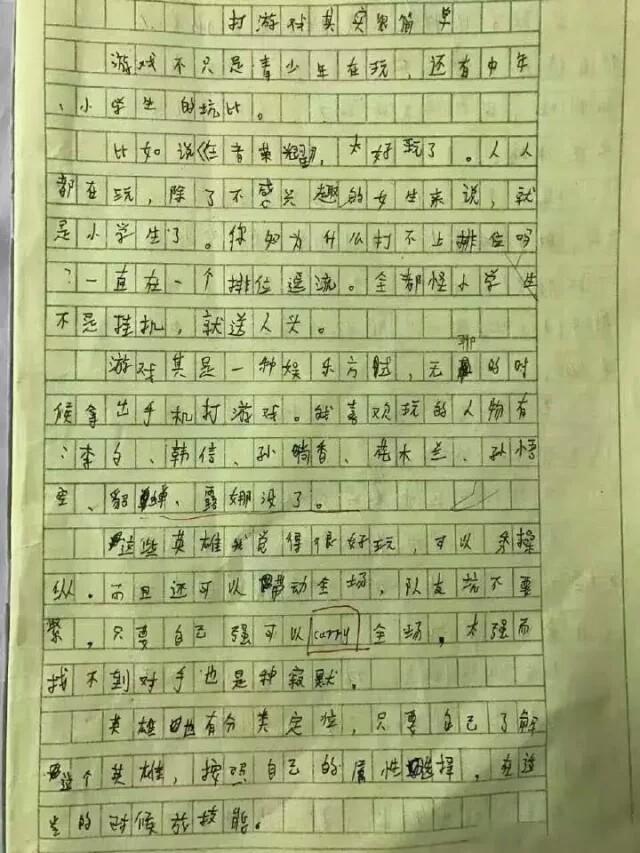 打游戏其实很简单
游戏不只是青少年在玩，还有中年
、小学生的玩比。
比如说《位者荣耀》，太好玩了。人人
都在玩，除了不感兴趣的女生来说，就
是小学生了。你知为什么打不上排位吗
？一直在一个排位逗流。全都怪小学生
不是挂机，就送人头。
游戏其是一种娱乐方式，无聊的时
候拿出手机打游戏。我喜欢玩的人物有
：李白、韩信、孙尚香、花木兰、孙悟
空、貂蝉、露娜没了。
这些英雄我觉得很好玩，可以来操
纵。而且还可以带动全场，队友坑不要
紧，只要自己强可以carry全场。太强而
找不到对手也是种寂默。
英雄也有分类定位，只要自己了解
这个英雄，按照自己的属性选择，在逃
生的时候放技能。